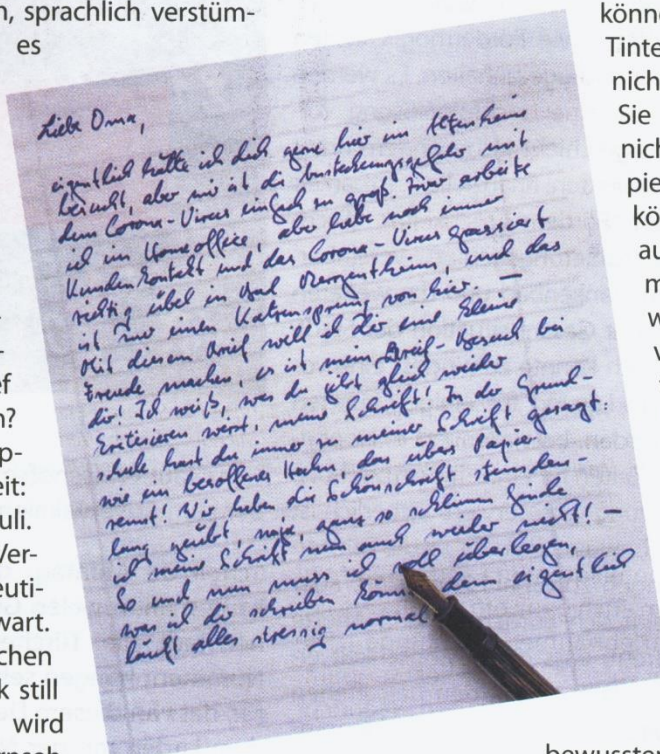 n, sprachlich verstüm-
es
Liebe Oma,
eigentlich hätte ich dich gerne hier im Altenheim
besucht, aber mir ist die Ansteckungsgefahr mit
dem Corona-Virus einfach zu groß. Zwar arbeite
ich im Homeoffice, aber habe noch immer
Kundenkontakt und das Corona-Virus grassiert
richtig übel in Bad Mergentheim, und das
ist nur einen Katzensprung von hier. —
Mit diesem Brief will ich Dir eine kleine
Freude machen, es ist mein Brief-Besuch bei
dir! Ich weiß, was du jetzt gleich wieder
kritisieren wirst, meine Schrift! In der Grund-
schule hast du immer zu meiner Schrift gesagt:
wie ein besoffener Hahn, der übers Papier
rennt! Wir haben die Schönschrift stunden-
lang geübt, naja, ganz so schlimm finde
ich meine Schrift nun auch wieder nicht! —
So und nun muss ich voll überlegen,
was ich dir schreiben könn denn eigentlich
läuft alles stressig normal
ef
n?
p-
eit:
uli.
Ver-
euti-
wart.
chen
k still
wird
könne
Tinte
nich
Sie
nich
pie
kö
au
m
w
v
bewusster